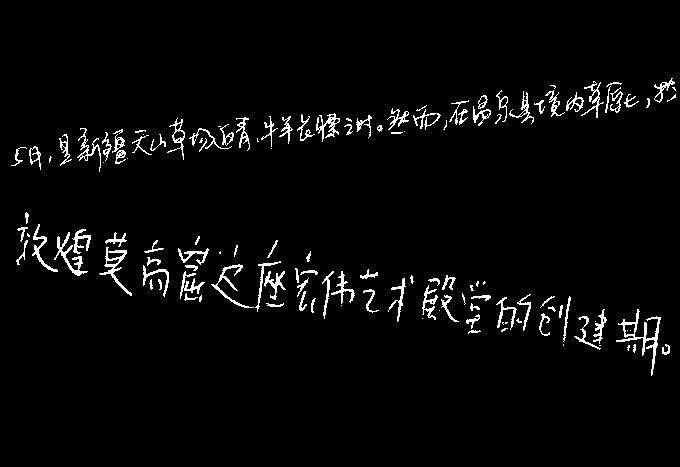 5月,是新疆天山草场返青、牛羊长膘之时。然而,在温泉县境内草原上,
敦煌莫高窟这座宏伟艺术殿堂的创建期。